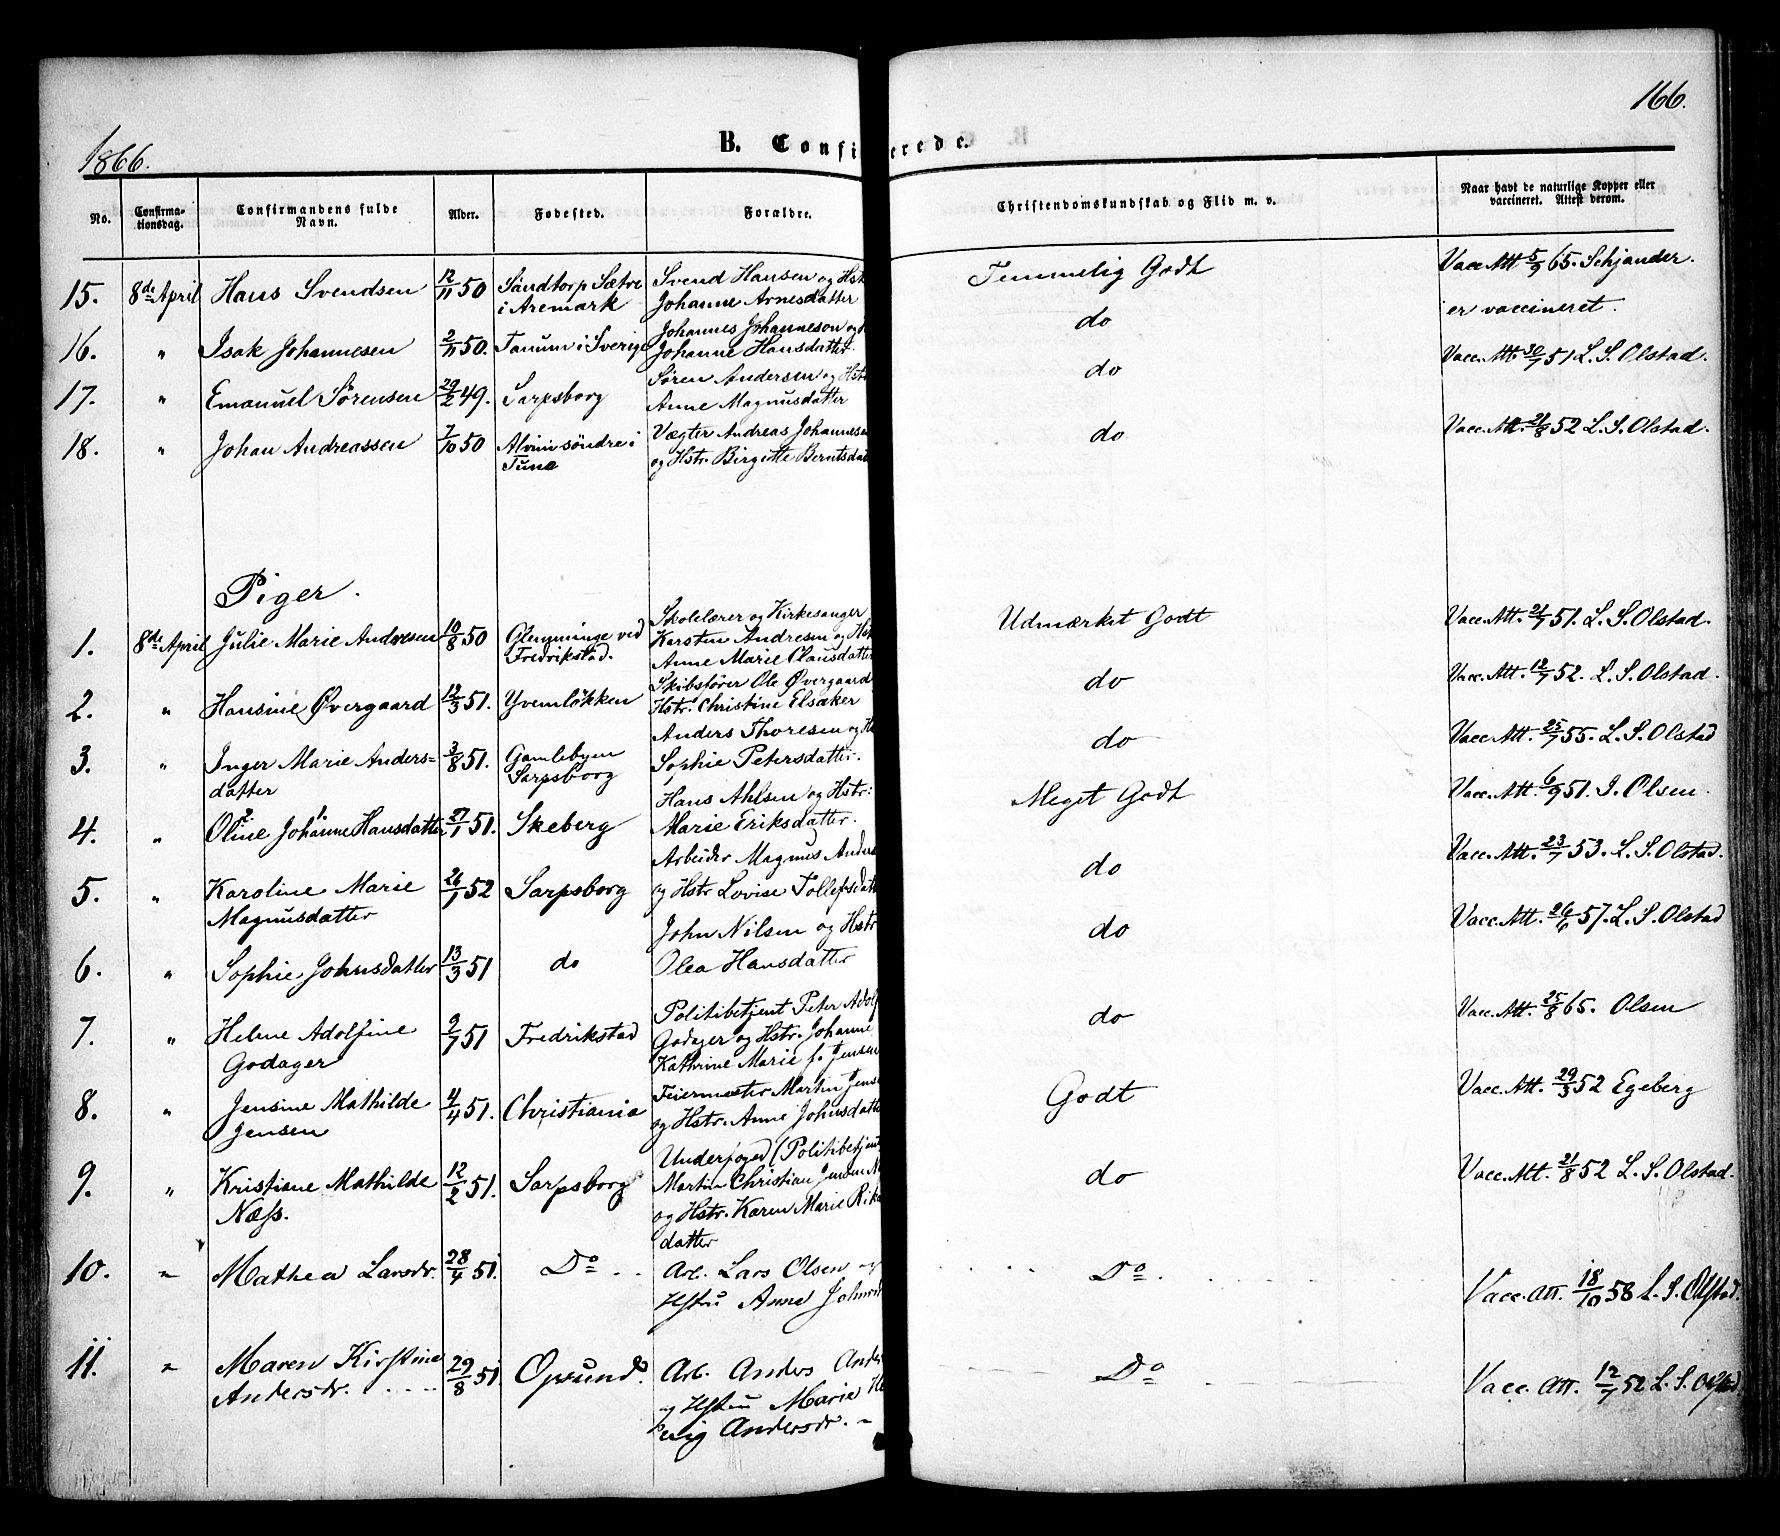 166.
1866.
B. Confi erede.
No.
Confirma-
tionsdag.
Confirmandens fulde
Navn.
Alder.
Fødested.
Forældre.
Christendomskundskab og Flid m. v.
Naar havt de naturlige Kopper eller
vaccineret. Attest derom.
15. 8de April Hans Svendsen 12/11 50 Sandtorp Sætre
i Aremark
Svend Hansen og Hst
Johanne Arnesdatter
Temmelig Godt
Vacc Att 5/9 65. Schjander.
16. " Isak Johannesen 2/11 50. Tanum i Sverige
Johannes Johanneson og
Johanne Hansdatter.
do
er vaccineret.
17. " Emanuel Sörensen 29/2 49. Sarpsborg
Søren Andersen og Hst
Anne Magnusdatter
do
Vacc. Att. 30/7 51 L. S. Olstad.
18. " Johan Andreassen 7/10 50 Alvim søndre i
Tune
Vægter Andreas Johannesen
og Hstr. Birgitte Berntsdat
do
Vacc. Att. 21/8 52 L. S. Olstad.
Piger.
1. 8de April Julie Marie Andresen 10/8 50 Glemminge ved
Fredrikstad.
Skolelærer og Kirkesanger
Karsten Andresen og Hst
Anne Marie Clausdatter
Udmærket Godt
Vacc. Att. 21/7 51. L. S. Olstad.
2. " Hansine Øvergaard 12/3 51. Yvenløkken
Skibsfører Ole Øvergaard
Hstr. Christine Elsaker
do
Vacc. Att. 12/7 52. L. S. Olstad.
3. " Inger Marie Anders=
datter
3/8 51. Gamlebyen
Sarpsborg
Anders Thoresen og H
Sophie Petersdatter.
do
Vacc Att. 25/7 55. L. S. Olstad
4. " Oline Johanne Hansdatter 27/1 51. Skeberg
Hans Ahlsen og Hstr:
Marie Eriksdatter.
Meget Godt
Vacc. Att. 6/9 51. I. Olsen.
5. " Karoline Marie
Magnusdatter
26/1 52 Sarpsborg
Arbeider Magnus Anders
og Hstr Lovise Tollefsdatt
do
Vacc. Att. 23/7 53. L. S. Olstad.
6. " Sophie Johnsdatter 13/3 51 do
John Nilsen og Hstr
Olea Hansdatter
do
Vacc. Att. 26/6 57. L. S. Olstad
7. " Helene Adolfine
Godager
9/7 51 Fredrikstad
Politibetjent Peter Adolf
Godager og Hstr. Johanne
Kathrine Marie f. Jensen
do
Vacc. Att. 25/8 65. Olsen
8. " Jensine Mathilde
Jensen
4/4 51. Christiania
Feiermester Martin Jens
og Hstr. Anne Johnsdatte
Godt
Vacc. Att. 29/3 52 Egeberg
9. " Kristiane Mathilde
Næss.
12/2 51. Sarpsborg
Underfoged (Politibetjent
Martin Christian Jensen N
og Hstr. Karen Marie Rik
datter
do
Vacc. Att. 21/8 52 L. S. Olstad.
10. " Mathea Larsdr. 28/4 51. Do
Arb. Lars Olsen og
Hstru Anne Johns
Do.
Vacc. Att. 18/10 58 L. S. Olstad.
11. " Maren Kirstine
Andersdr.
29/8 51. Opsund.
Arb. Anders Ander
og Hstru Marie H
Andersdr.
Do
Vacc. Att. 12/7 52 L. S. Olstad